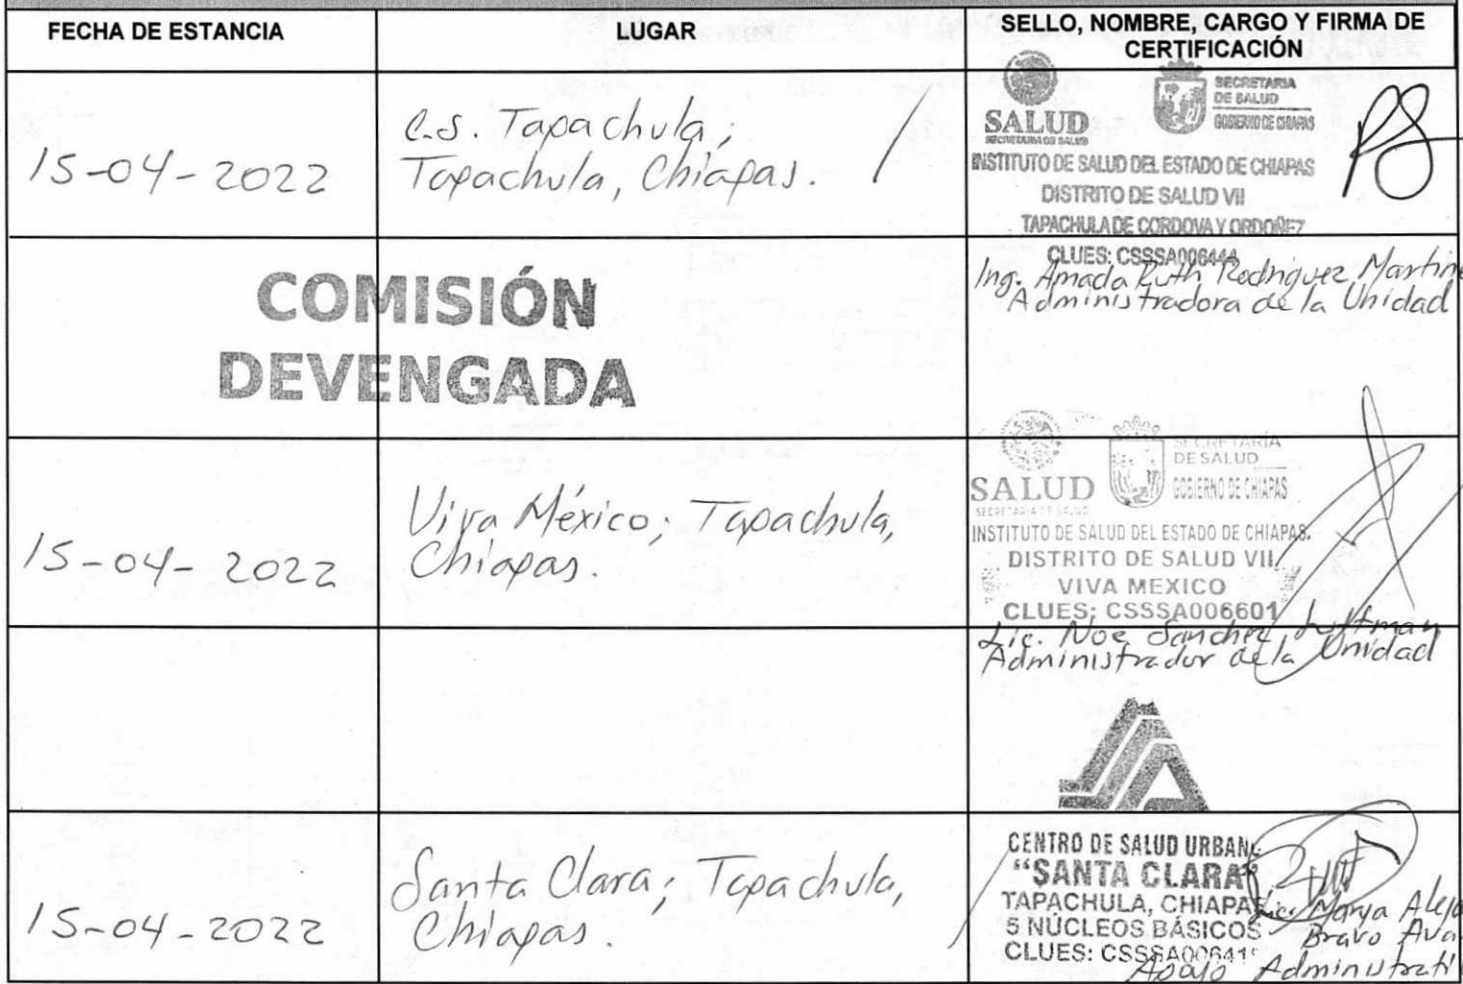 FECHA DE ESTANCIA
LUGAR
SELLO, NOMBRE, CARGO Y FIRMA DE
CERTIFICACIÓN
15-04-2022
C.S. Tapachula;
Tapachula, Chiapas.
SALUD
SECRETARIA DE SALUD
SECRETARIA
DE SALUD
GOBIERNO DE CHIAPAS
INSTITUTO DE SALUD DEL ESTADO DE CHIAPAS
DISTRITO DE SALUD VII
TAPACHULA DE CORDOVA Y ORDOÑEZ
CLUES: CSSSA006444
Ing. Amada Ruth Rodriguez Martine
Administradora de la Unidad
COMISIÓN
DEVENGADA
15-04-2022
Viva México; Tapachula,
Chiapas.
SALUD
SECRETARIA DE SALUD
SECRETARÍA
DE SALUD
GOBIERNO DE CHIAPAS
INSTITUTO DE SALUD DEL ESTADO DE CHIAPAS.
DISTRITO DE SALUD VII
VIVA MEXICO
CLUES: CSSSA006601
Lic. Noe Sanchez
Administrador de la Unidad
15-04-2022
Santa Clara; Tapachula,
Chiapas.
CENTRO DE SALUD URBAN
“SANTA CLARA”
TAPACHULA, CHIAPAS
5 NÚCLEOS BÁSICOS
CLUES: CSSSA00641
Lic. Marya Alej
Bravo Ava
Apoyo Administrati